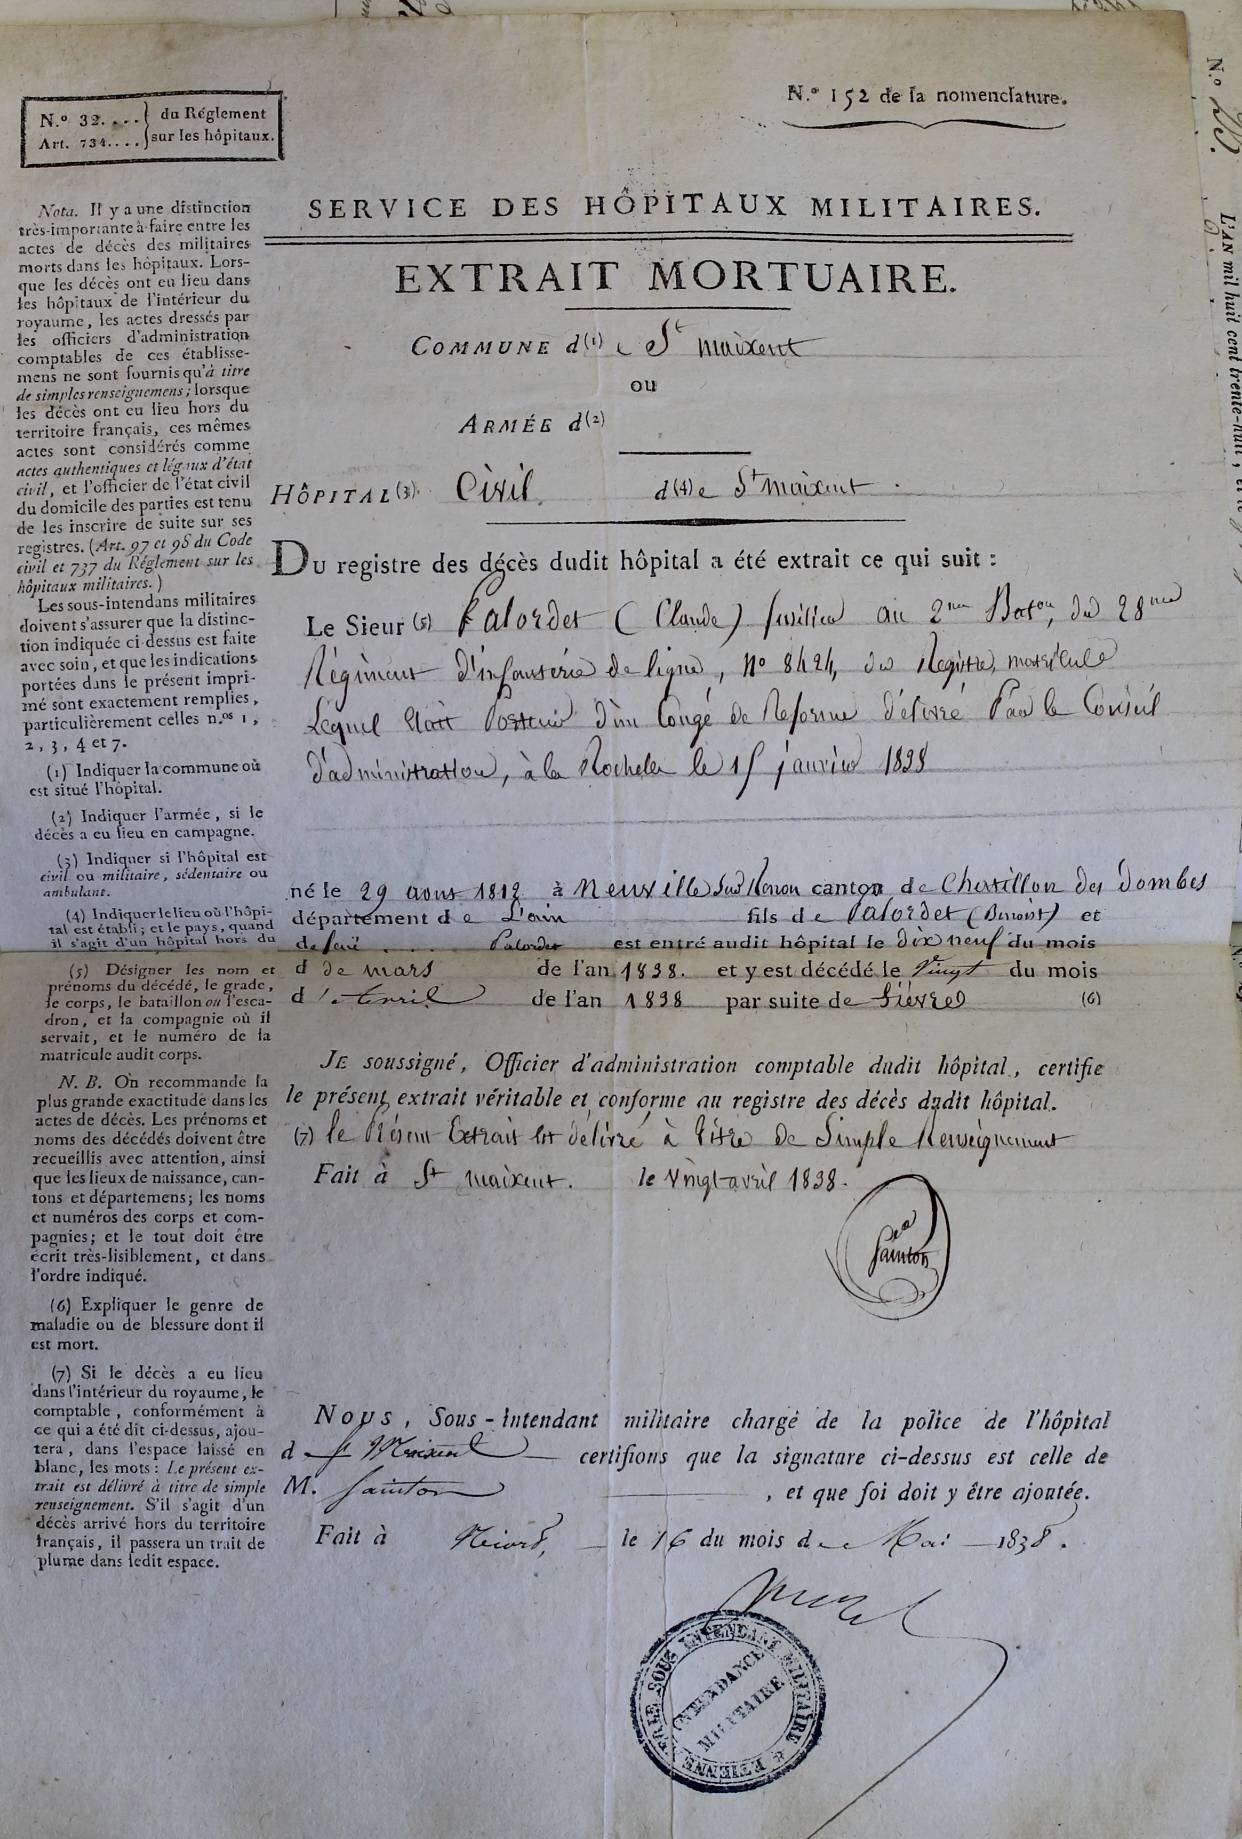 N.º 32....
Art. 734....
du Réglement
sur les hôpitaux.
N.º 152 de la nomenclature.
SERVICE DES HÔPITAUX MILITAIRES.
EXTRAIT MORTUAIRE.
COMMUNE d(1) e St maixent
ou
ARMÉE d(2)
HÔPITAL(3) Civil d(4)e St maixent.
DU registre des décès dudit hôpital a été extrait ce qui suit :
Le Sieur (5) Palordet (Claude) fusilier au 2me Baton, du 28me
Régiment d'infanterie de ligne, No 8424, du Registre matricule
Lequel était Porteur d'un Congé de Reforme délivré Par le Conseil
d'administration, à la Rochelle le 15 janvier 1838
né le 29 aous 1812 à Neuville Sur Renon canton de Chatillon des Dombes
département de L'ain fils de Palordet (Benoist) et
de Palordet est entré audit hôpital le dix neuf du mois
d de mars de l'an 1838. et y est décédé le Vingt du mois
d'avril de l'an 1838 par suite de fièvre (6)
JE soussigné, Officier d'administration comptable dudit hôpital, certifie
le présent extrait véritable et conforme au registre des décès dudit hôpital.
(7) le Présent Extrait est délivré à titre de Simple Renseignement
Fait à St maixent. le Vingt avril 1838.
Sainton
NOUS, Sous-Intendant militaire chargé de la police de l'hôpital
d St Maixent certifions que la signature ci-dessus est celle de
M. Sainton , et que foi doit y être ajoutée.
Fait à Niort, le 16 du mois de Mai 1838.
SOUS INTENDANT MILITAIRE
INTENDANCE
MILITAIRE
Nota. Il y a une distinction
très-importante à faire entre les
actes de décès des militaires
morts dans les hôpitaux. Lors-
que les décès ont eu lieu dans
les hôpitaux de l'intérieur du
royaume, les actes dressés par
les officiers d'administration
comptables de ces établisse-
mens ne sont fournis qu'à titre
de simples renseignemens; lorsque
les décès ont eu lieu hors du
territoire français, ces mêmes
actes sont considérés comme
actes authentiques et légaux d'état
civil, et l'officier de l'état civil
du domicile des parties est tenu
de les inscrire de suite sur ses
registres. (Art. 97 et 98 du Code
civil et 737 du Réglement sur les
hôpitaux militaires.)
Les sous-intendans militaires
doivent s'assurer que la distinc-
tion indiquée ci-dessus est faite
avec soin, et que les indications
portées dans le présent impri-
mé sont exactement remplies,
particulièrement celles n.os 1,
2, 3, 4 et 7.
(1) Indiquer la commune où
est situé l'hôpital.
(2) Indiquer l'armée, si le
décès a eu lieu en campagne.
(3) Indiquer si l'hôpital est
civil ou militaire, sédentaire ou
ambulant.
(4) Indiquer le lieu où l'hôpi-
tal est établi; et le pays, quand
il s'agit d'un hôpital hors du
(5) Désigner les nom et
prénoms du décédé, le grade,
le corps, le bataillon ou l'esca-
dron, et la compagnie où il
servait, et le numéro de la
matricule audit corps.
N. B. On recommande la
plus grande exactitude dans les
actes de décès. Les prénoms et
noms des décédés doivent être
recueillis avec attention, ainsi
que les lieux de naissance, can-
tons et départemens; les noms
et numéros des corps et com-
pagnies; et le tout doit être
écrit très-lisiblement, et dans
l'ordre indiqué.
(6) Expliquer le genre de
maladie ou de blessure dont il
est mort.
(7) Si le décès a eu lieu
dans l'intérieur du royaume, le
comptable, conformément à
ce qui a été dit ci-dessus, ajou-
tera, dans l'espace laissé en
blanc, les mots : Le présent ex-
trait est délivré à titre de simple
renseignement. S'il s'agit d'un
décès arrivé hors du territoire
français, il passera un trait de
plume dans ledit espace.
N.º
L'AN mil huit cent trente-huit, et le